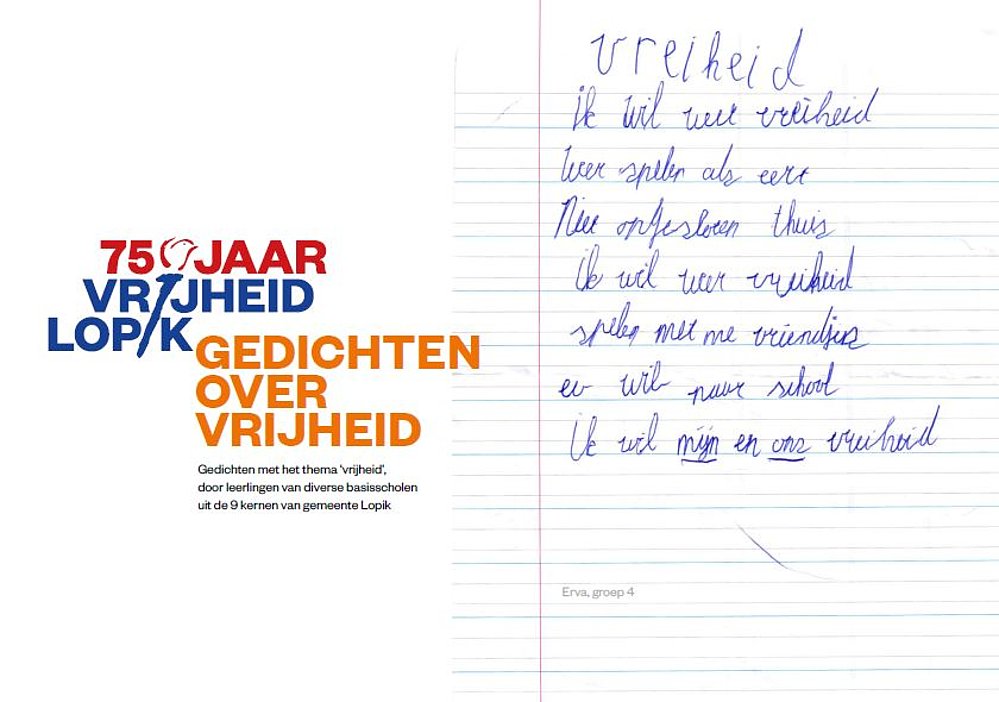 75 JAAR
VRIJHEID
LOPIK
GEDICHTEN
OVER
VRIJHEID
Gedichten met het thema ‘vrijheid’,
door leerlingen van diverse basisscholen
uit de 9 kernen van gemeente Lopik
vreiheid
ik wil weer vreiheid
weer spelen als eert
Niet opgesloten thuis
ik wil weer vreiheid
spelen met me vriendjes
en wil naar school
Ik wil mijn en ons vreiheid
Erva, groep 4